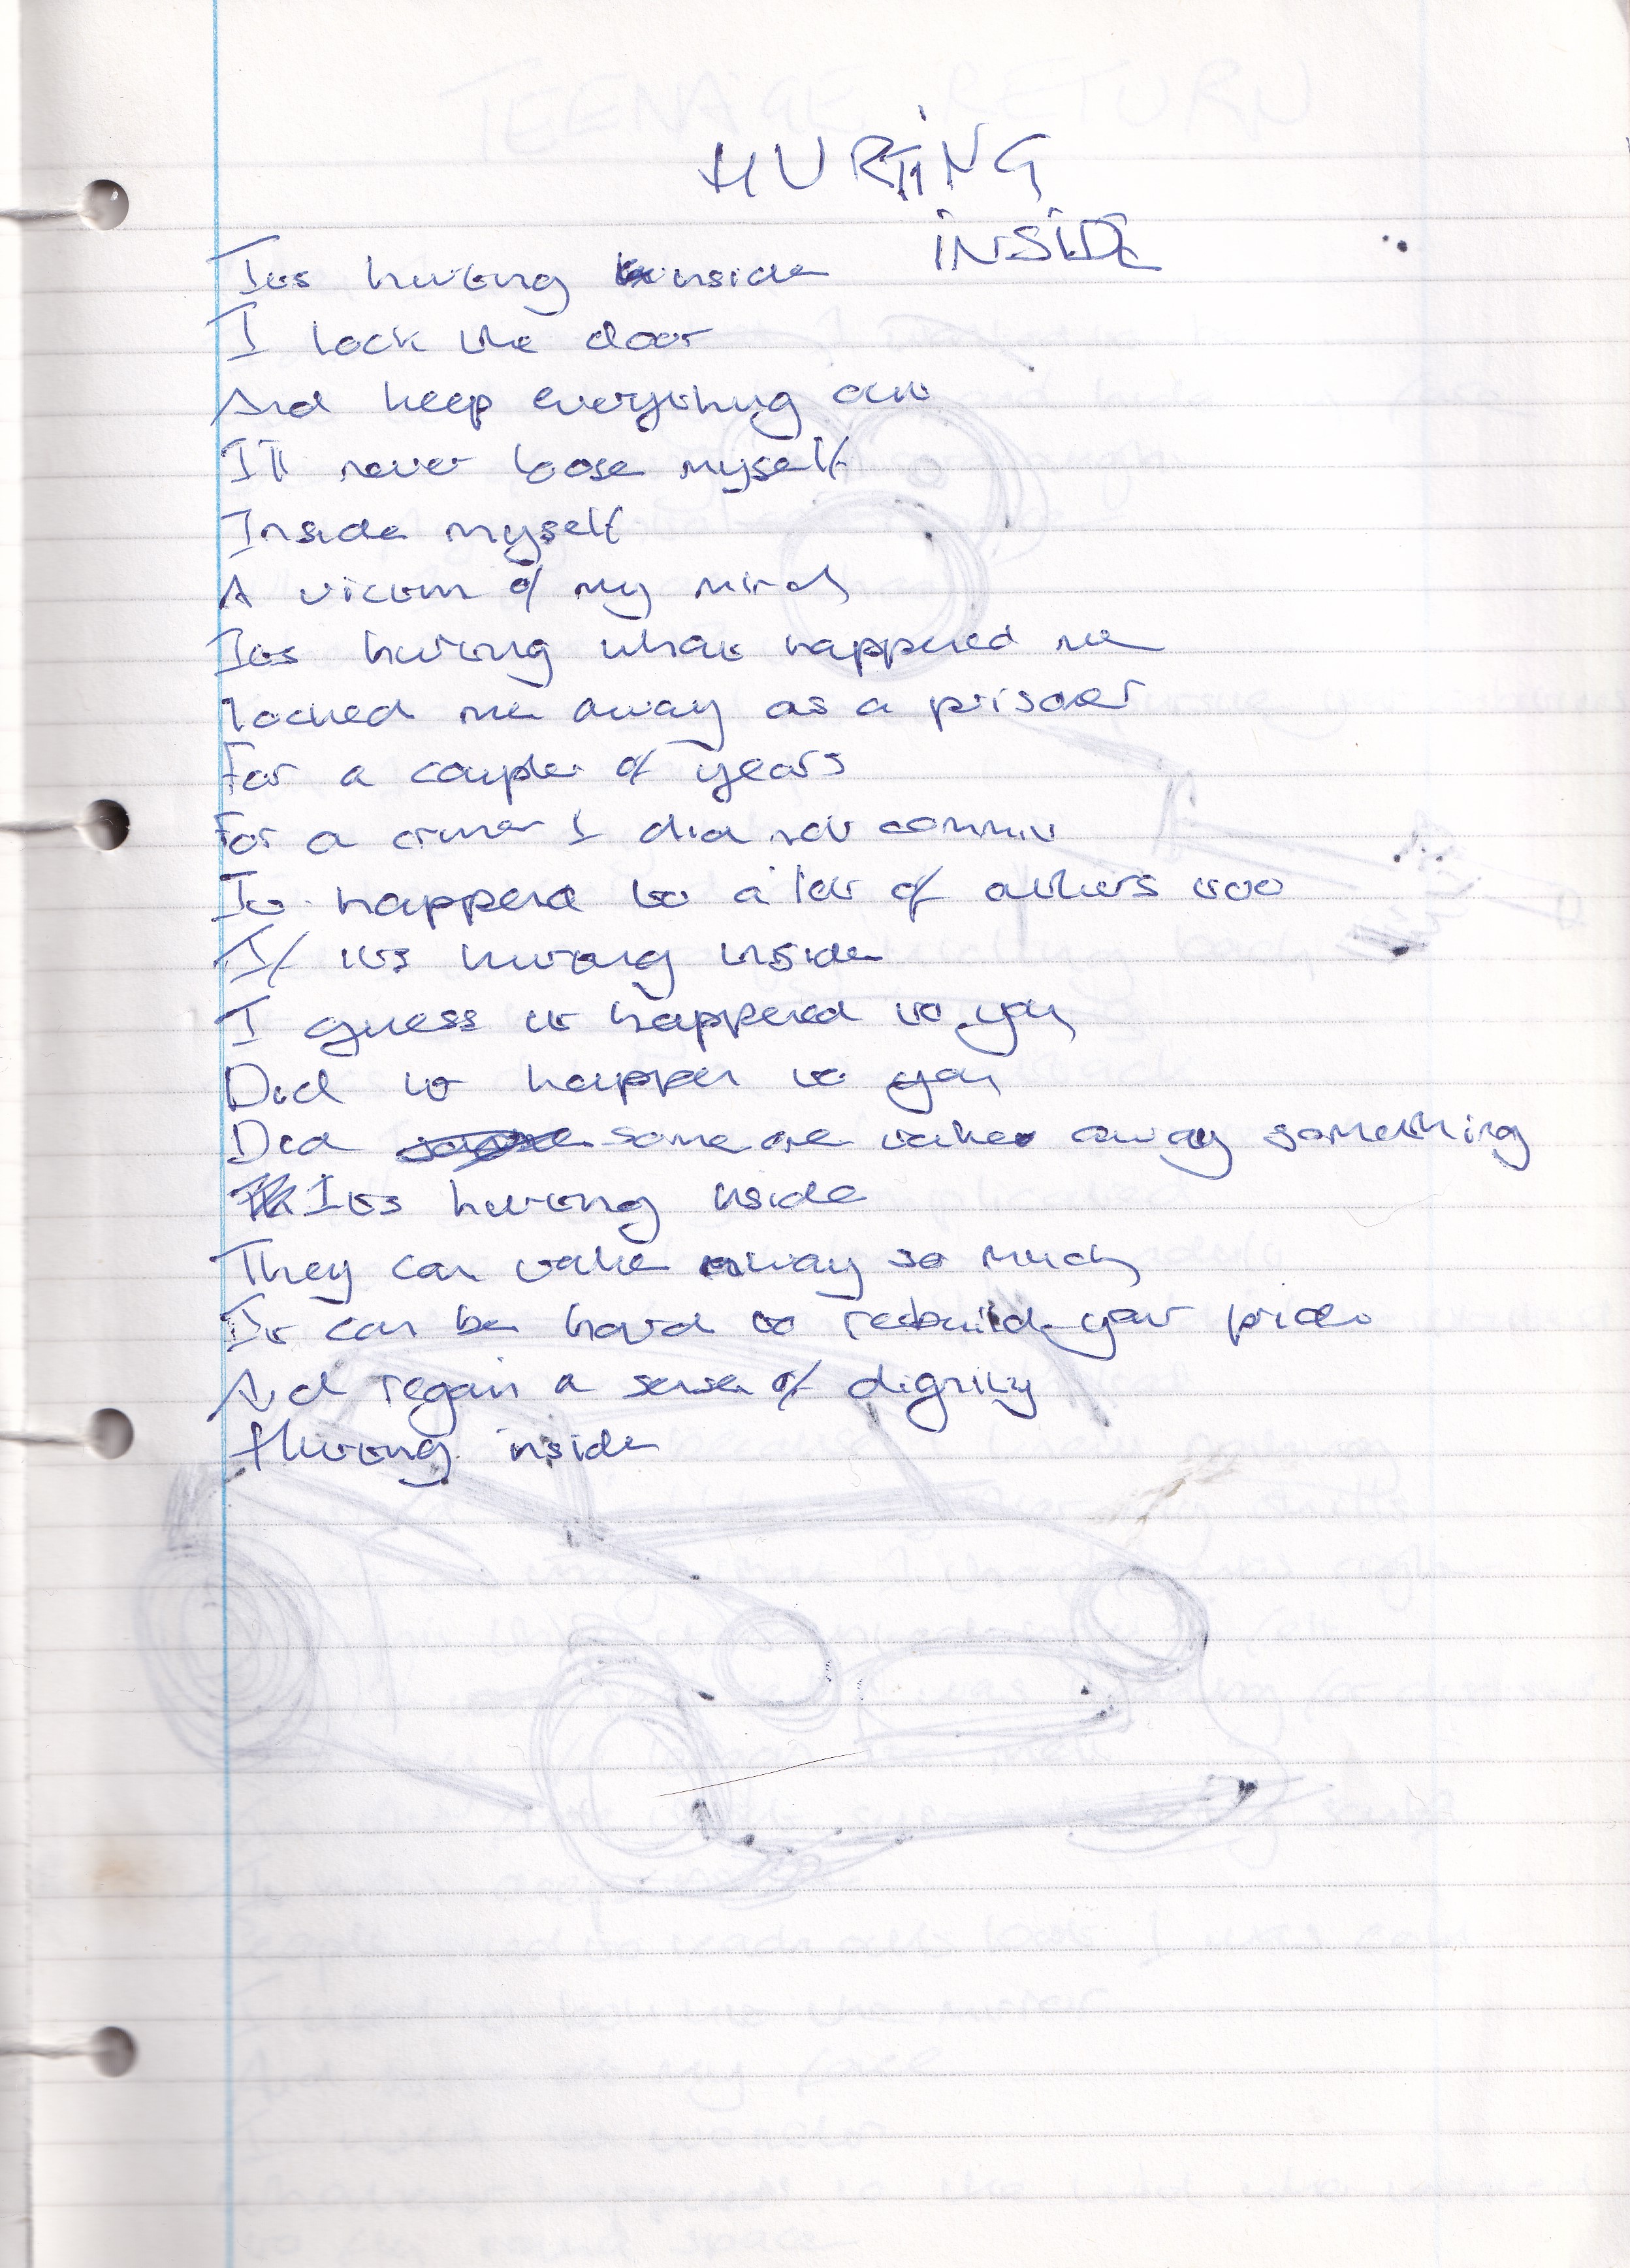 HURTING
INSIDE
Its hurting inside
I lock the door
And keep everything out
I'll never loose myself
Inside myself
A victim of my mind
Its hurting what happened me
locked me away as a prisoner
For a couple of years
For a crime I did not commit
It happend to a lot of others too
If its hurting inside
I guess it happened to you
Did it happen to you
Did someone take away something
Its hurting inside
They can take away so much
It can be hard to rebuild your pride
And regain a sense of dignity
Hurting inside